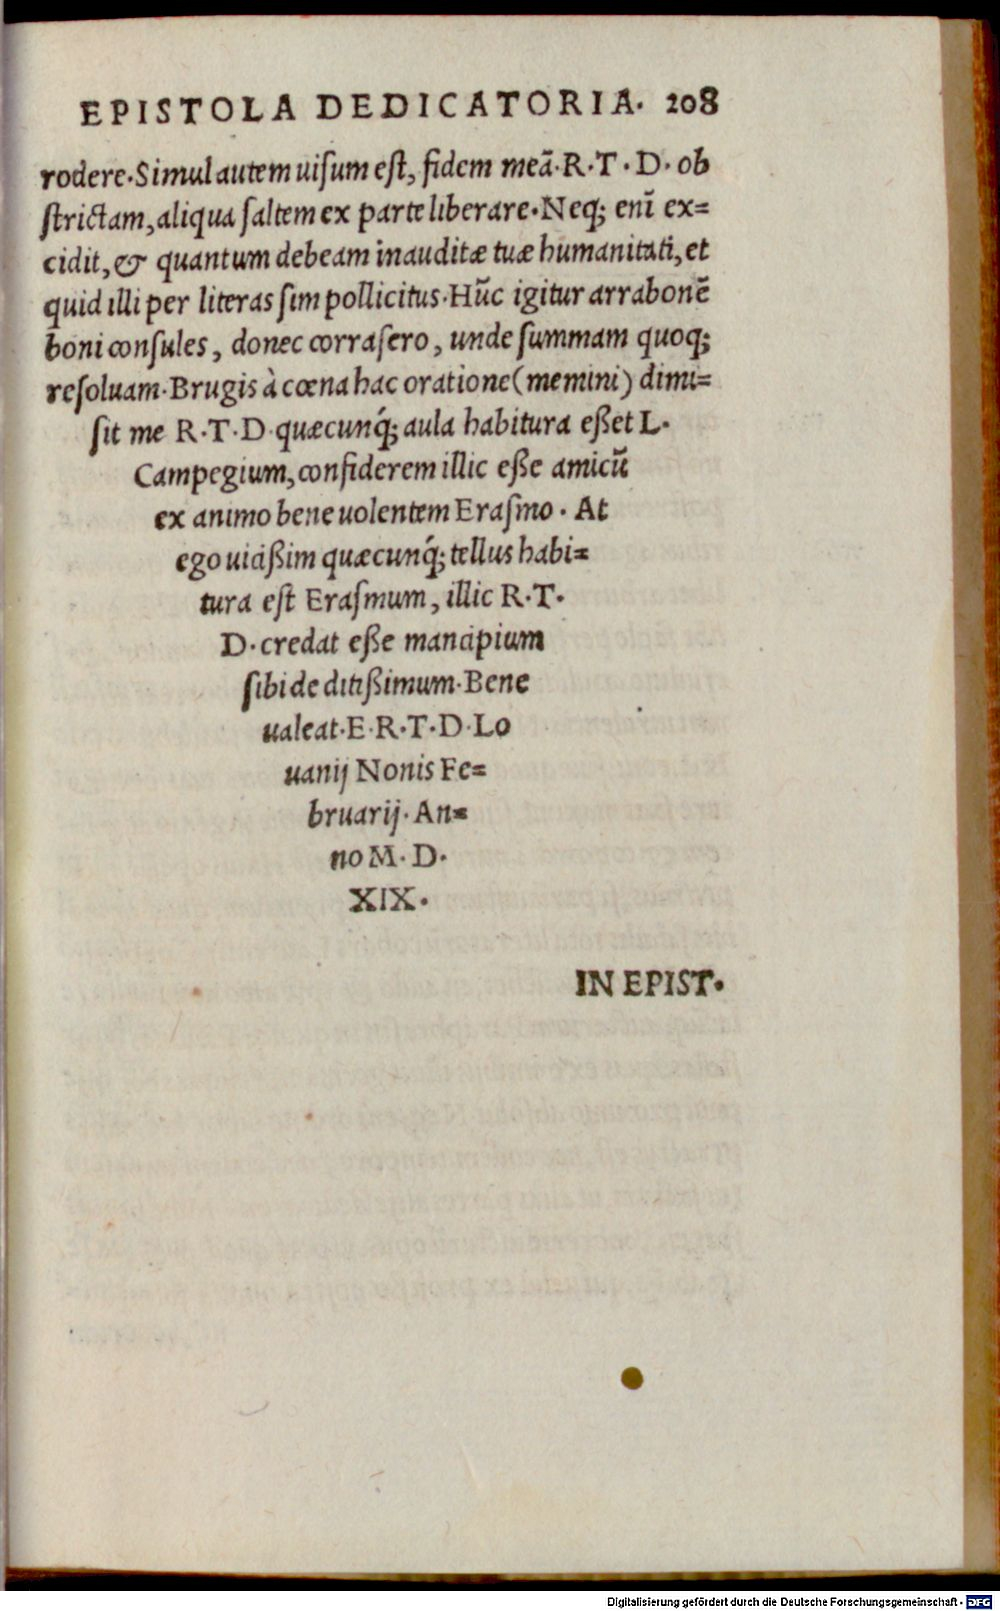 EPISTOLA DEDICATORIA. 208
rodere.Simul autem uiſum eſt, fidem meā.R.T.D.ob
ſtrictam, aliqua ſaltem ex parte liberare.Neq; enī ex=
cidit, & quantum debeam inauditæ tuæ humanitati, et
quid illi per literas ſim pollicitus.Hūc igitur arrabonē
boni conſules, donec corraſero, unde ſummam quoq;
reſoluam.Brugis à cœna hac oratione (memini) dimi=
ſit me R.T.D quæcunq́; aula habitura eßet L.
Campegium, confiderem illic eße amicū
ex animo bene uolentem Eraſmo. At
ego uicißim quæcunq́; tellus habi=
tura eſt Eraſmum, illic R.T.
D.credat eße mancipium
ſibi deditißimum.Bene
ualeat.E.R.T.D.Lo
uanij Nonis Fe=
bruarij. An=
no M.D.
XIX.
IN EPIST.
Digitalisierung gefördert durch die Deutsche Forschungsgemeinschaft - DFG